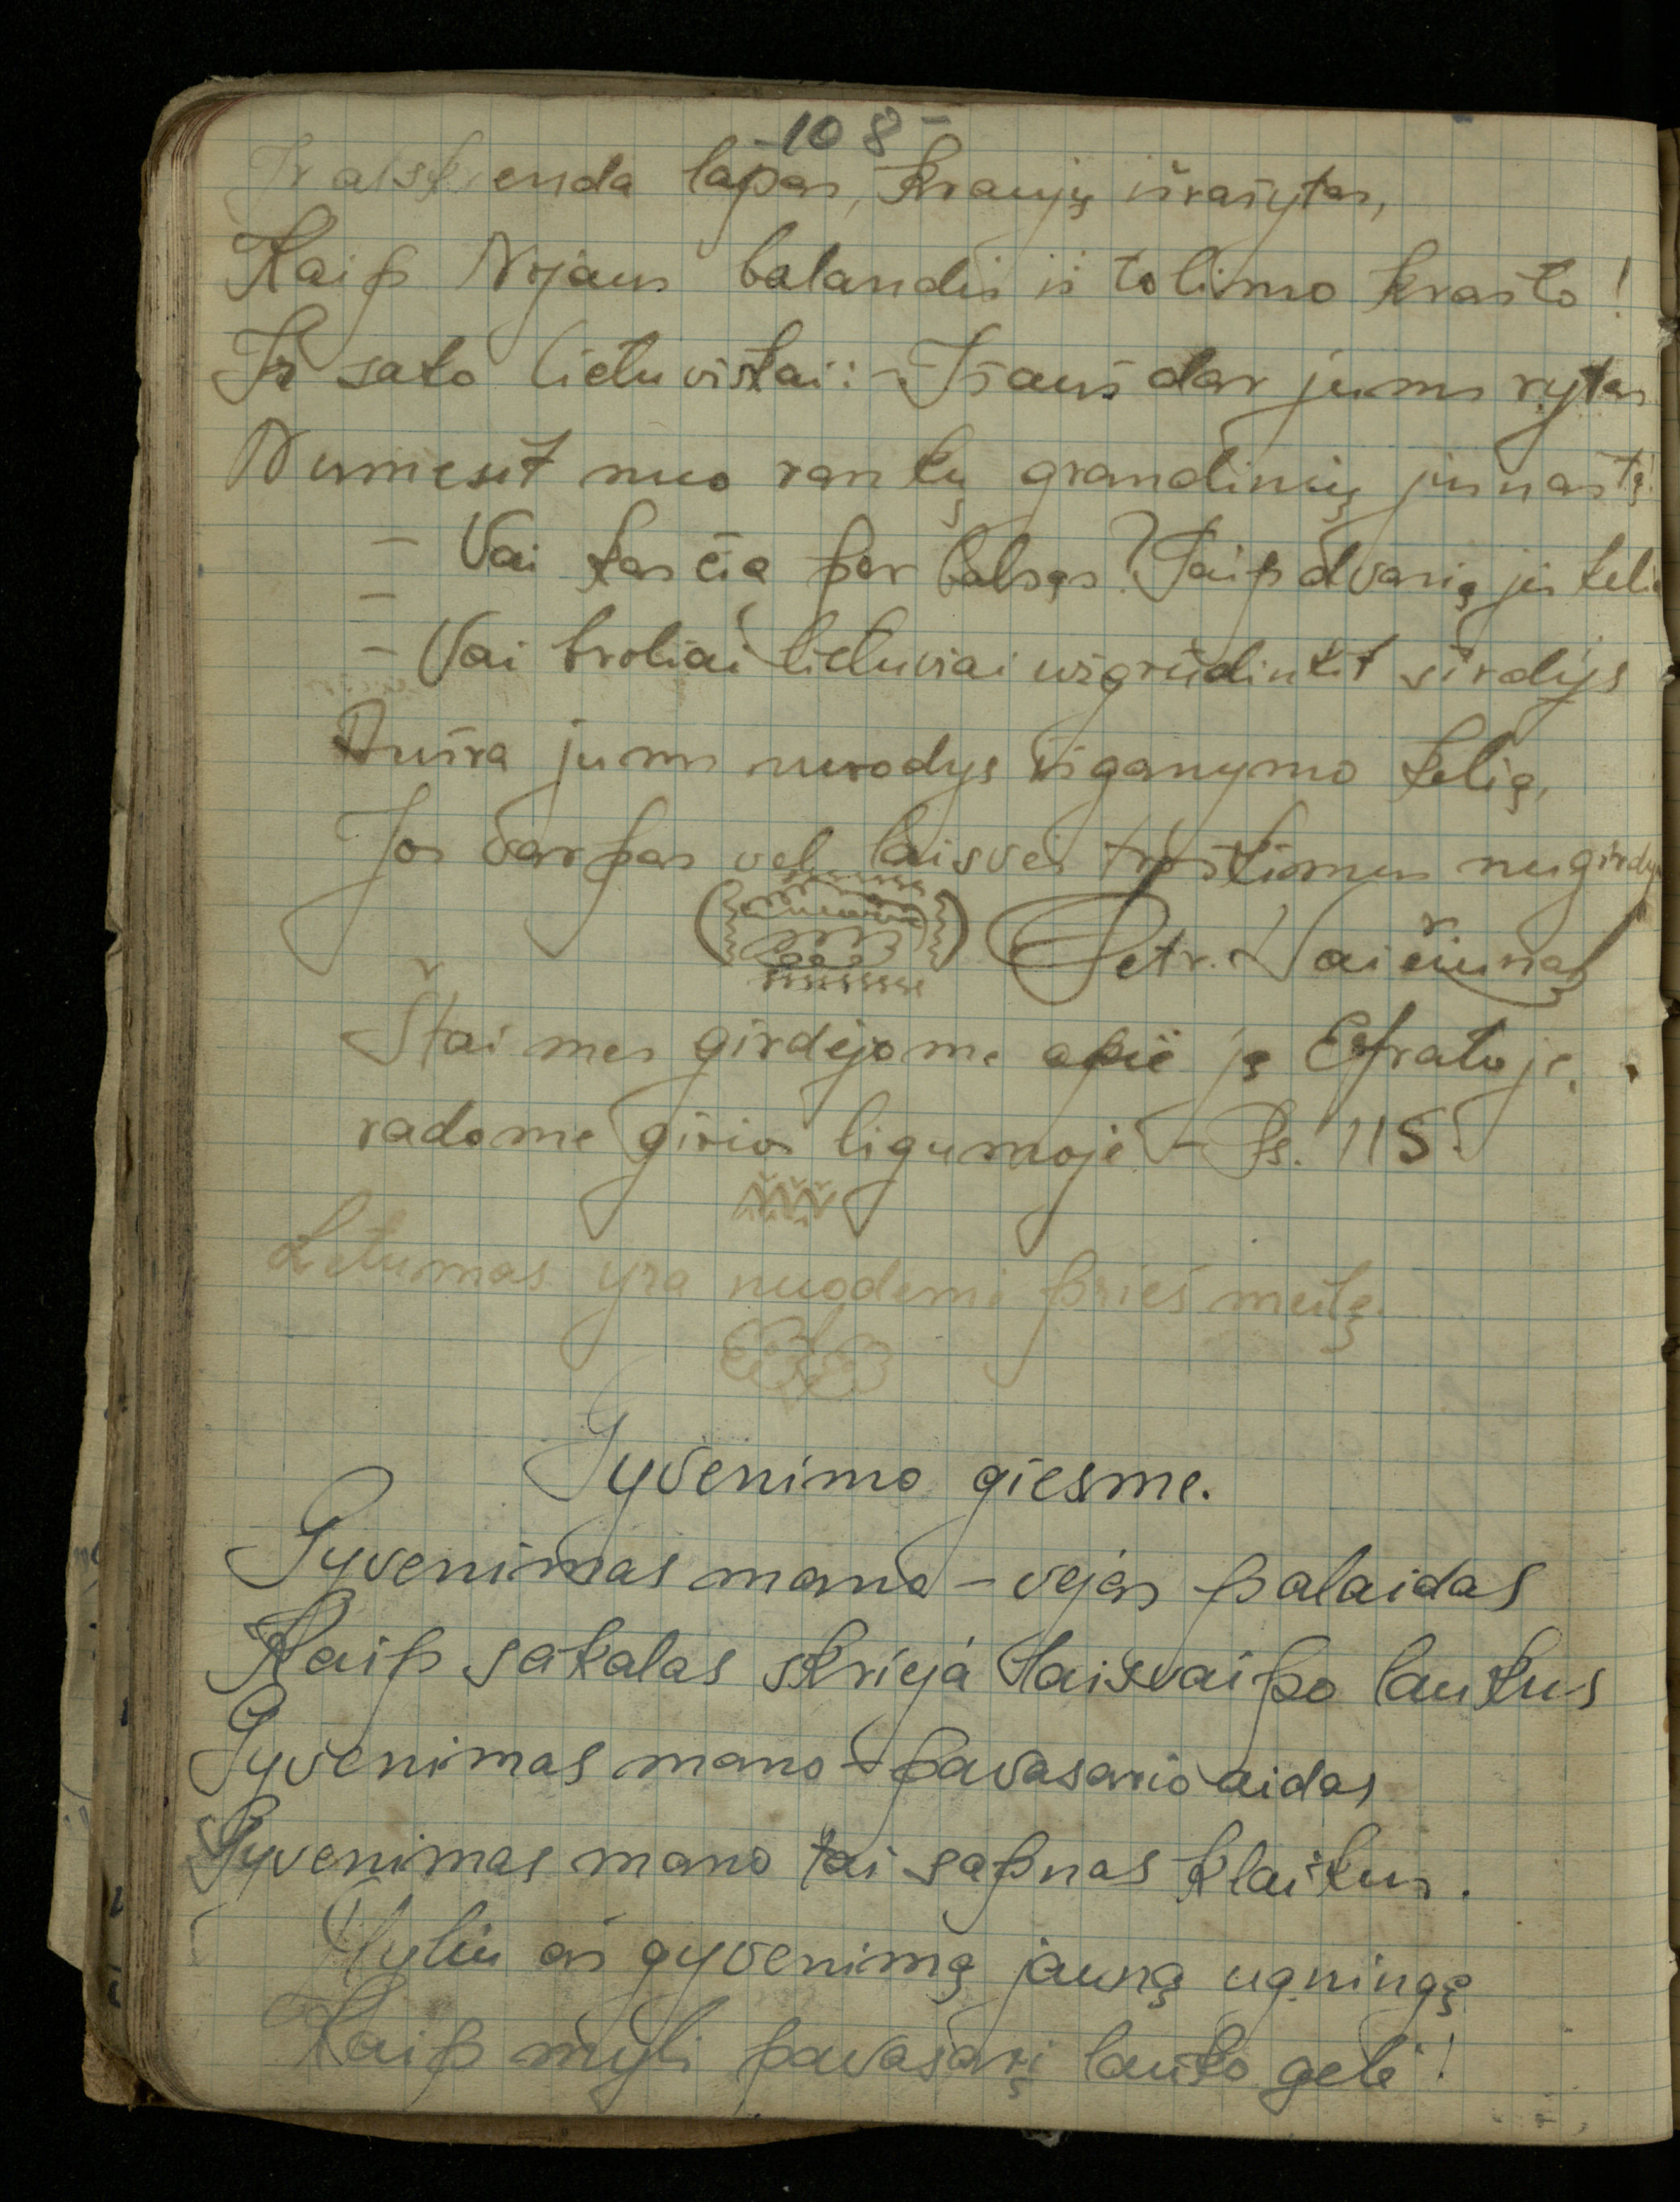 -108-
Ir atskrenda lapas, kraujų išrašytas,
Kaip Nojaus balandis iš tolimo krašto!
Ir sako lietuviškai: – Išauš dar jums rytas
Numesit nuo rankų grandinių jų naštą!
– Vai kas čia per balsas? Taip dvasią jis kelia
– Vai broliai lietuviai užgrūdinkit širdys
Aušra jums nurodys išganymo kelią,
Jos varpas vel laisvės troškimus nugirdys
Petr. Vaičiunas
Štai mes girdėjome apie ją Efratoje,
radome girios ligumoje – Ps. 115.
Lėtumas yra nuodemė prieš meilę.
Gyvenimo giesme.
Gyvenimas mano – vejas palaidas
Kaip sakalas skrieja laisvai po laukus
Gyvenimas mano – pavasario aidas
Gyvenimas mano tai sapnas klaikus.
Myliu aš gyvenimą jauną ugningą
Kaip myli pavasarį lauko gelė!